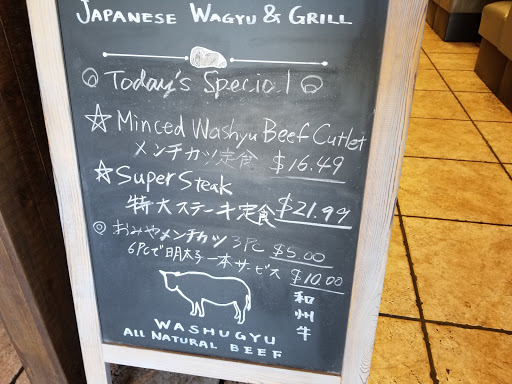 JAPANESE WAGYU & GRILL
Today's Special
Minced Washyu Beef Cutlet
メンチカツ定食 $16.49
Super Steak
特大ステーキ定食 $21.99
おみやメンチカツ 3PC $5.00
6PCで明太子一本サービス $10.00
和州牛
WASHUGYU
ALL NATURAL BEEF